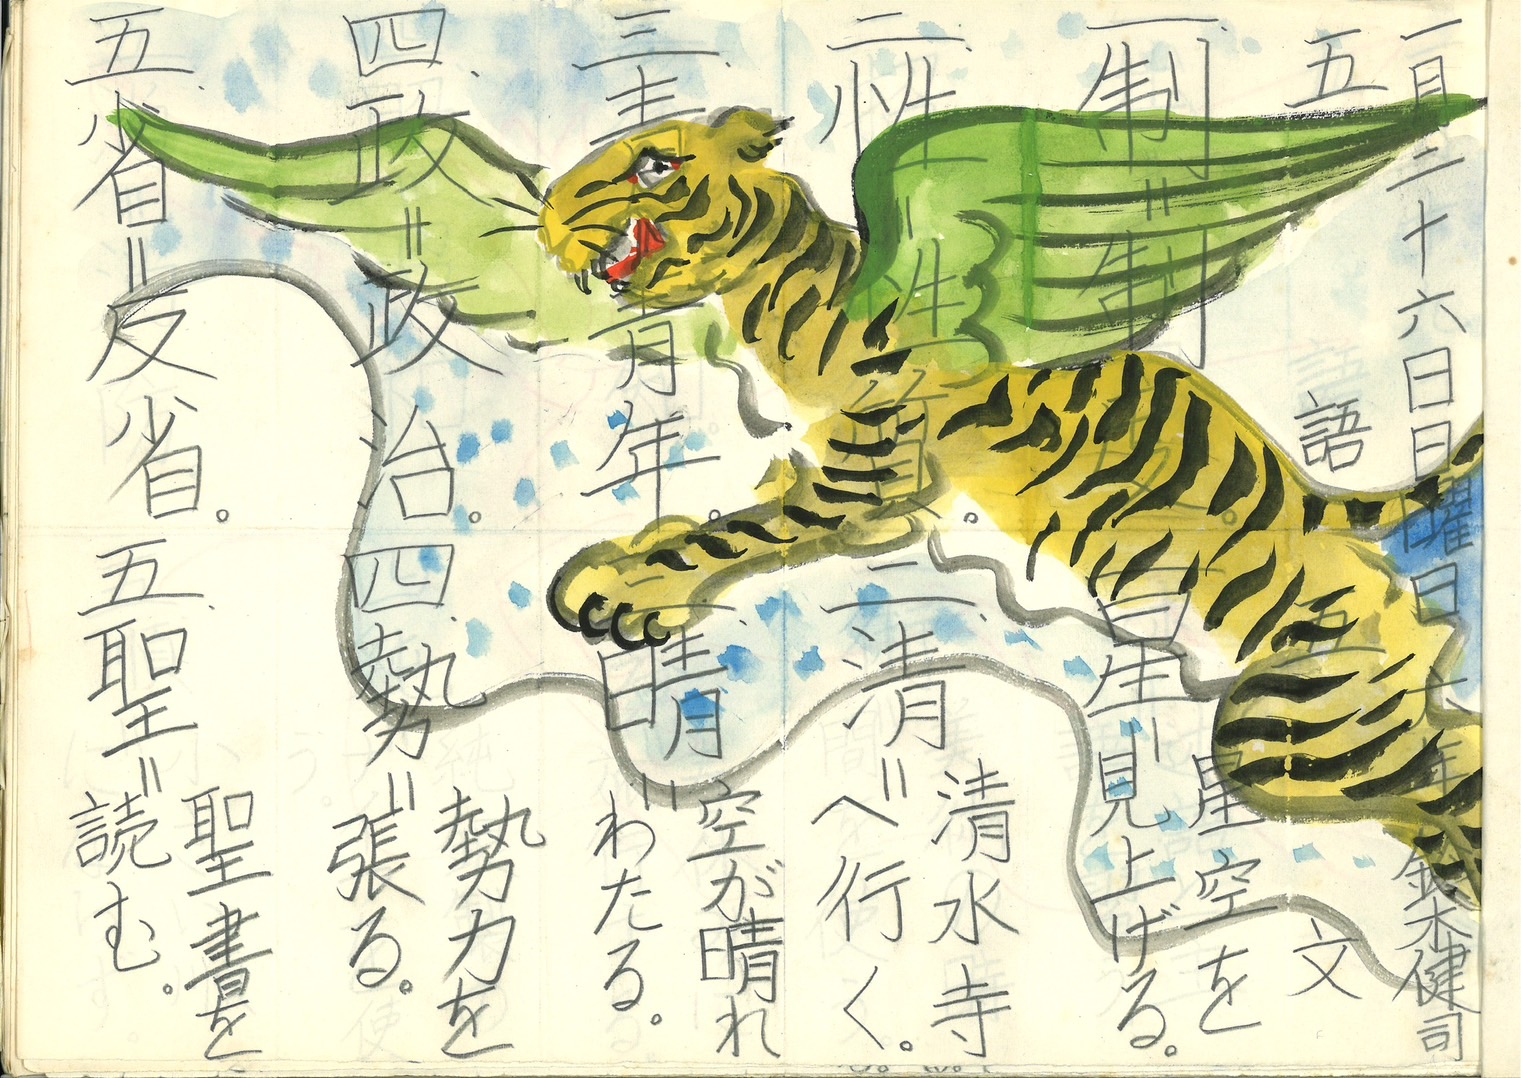 一月二十六日日曜日 六年 鈴木健司
五 語 五 文
一、制＝制。 一、星＝星空を
見上げる。
二、性＝性質。 二、清＝清水寺
へ行く。
三、青＝青年。 三、晴＝空が晴れ
わたる。
四、政＝政治。 四、勢＝勢力を
張る。
五、省＝反省。 五、聖＝聖書を
読む。